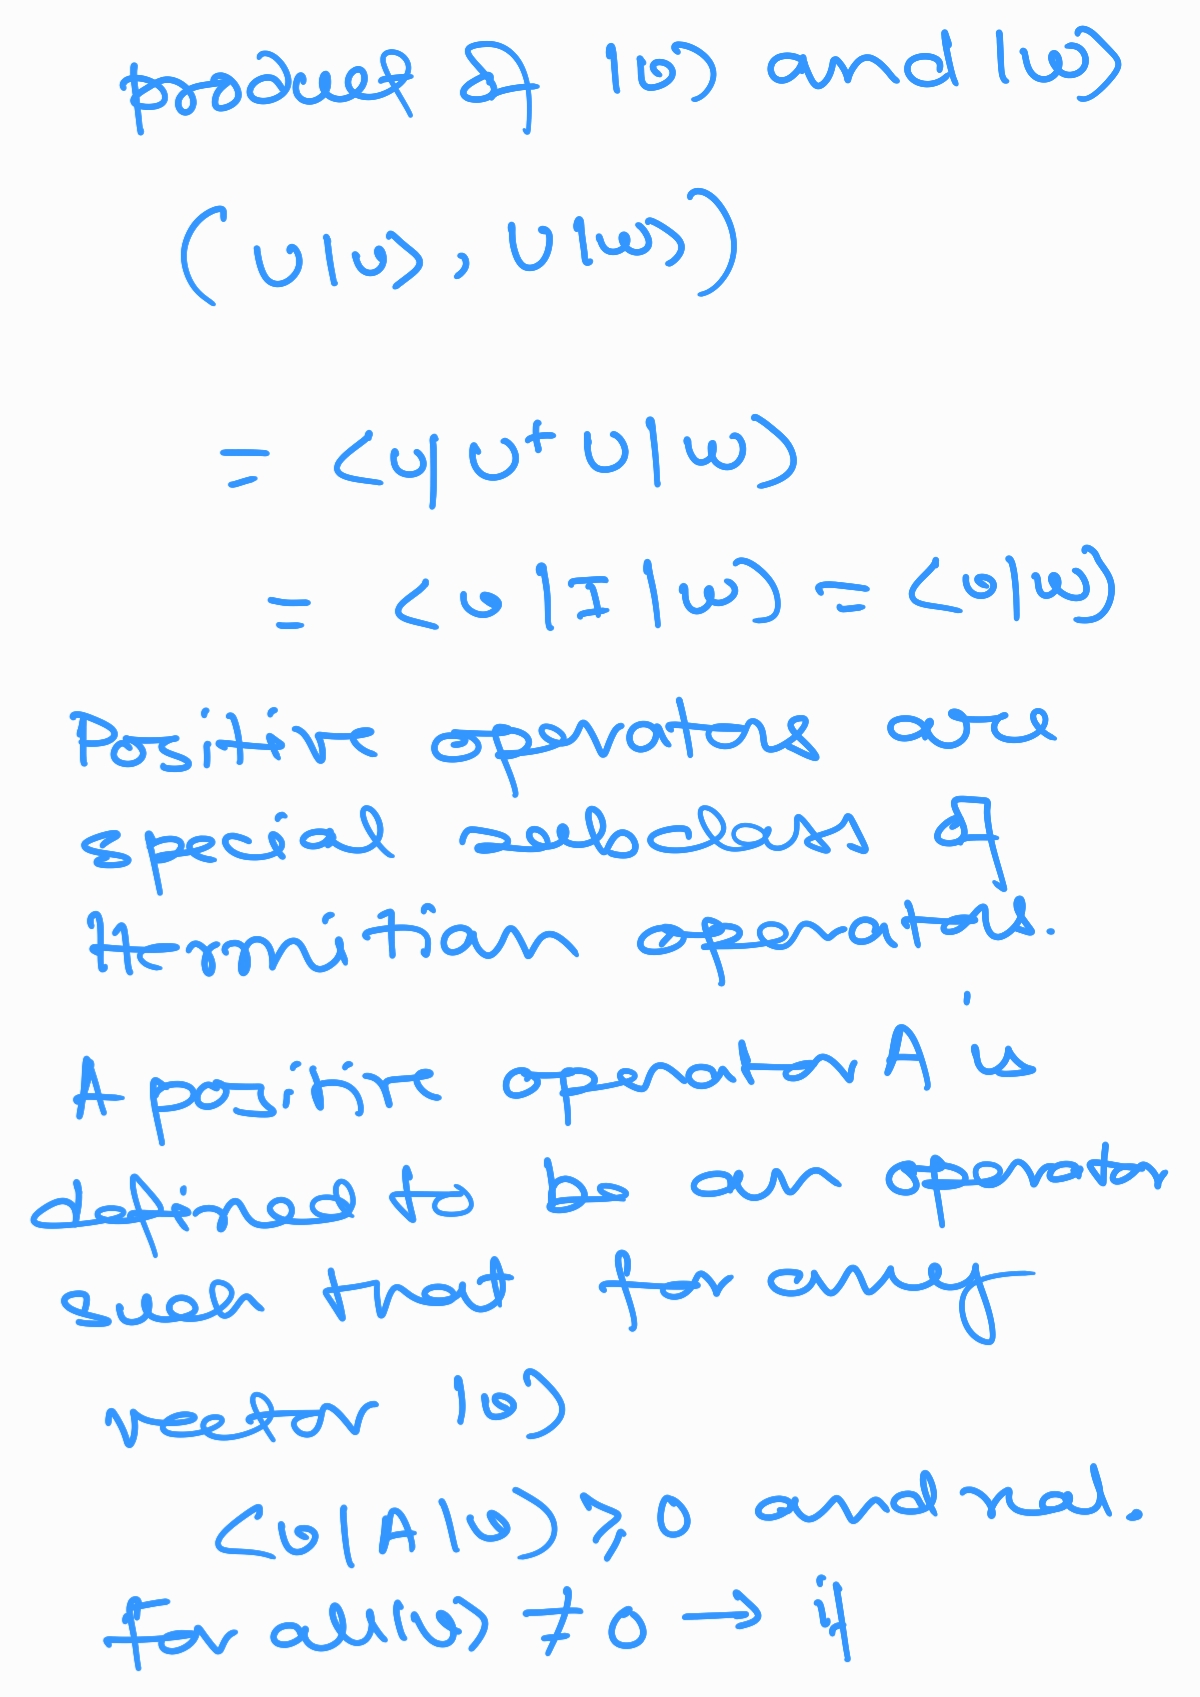 product of |v⟩ and |w⟩
(U|v⟩, U|w⟩)
= ⟨v|U† U|w⟩
= ⟨v|I|w⟩ = ⟨v|w⟩
Positive operators are
special subclass of
Hermitian operators.
A positive operator A is
defined to be an operator
such that for any
vector |v⟩
⟨v|A|v⟩ ⩾ 0 and real.
For all |v⟩ ≠ 0 → if